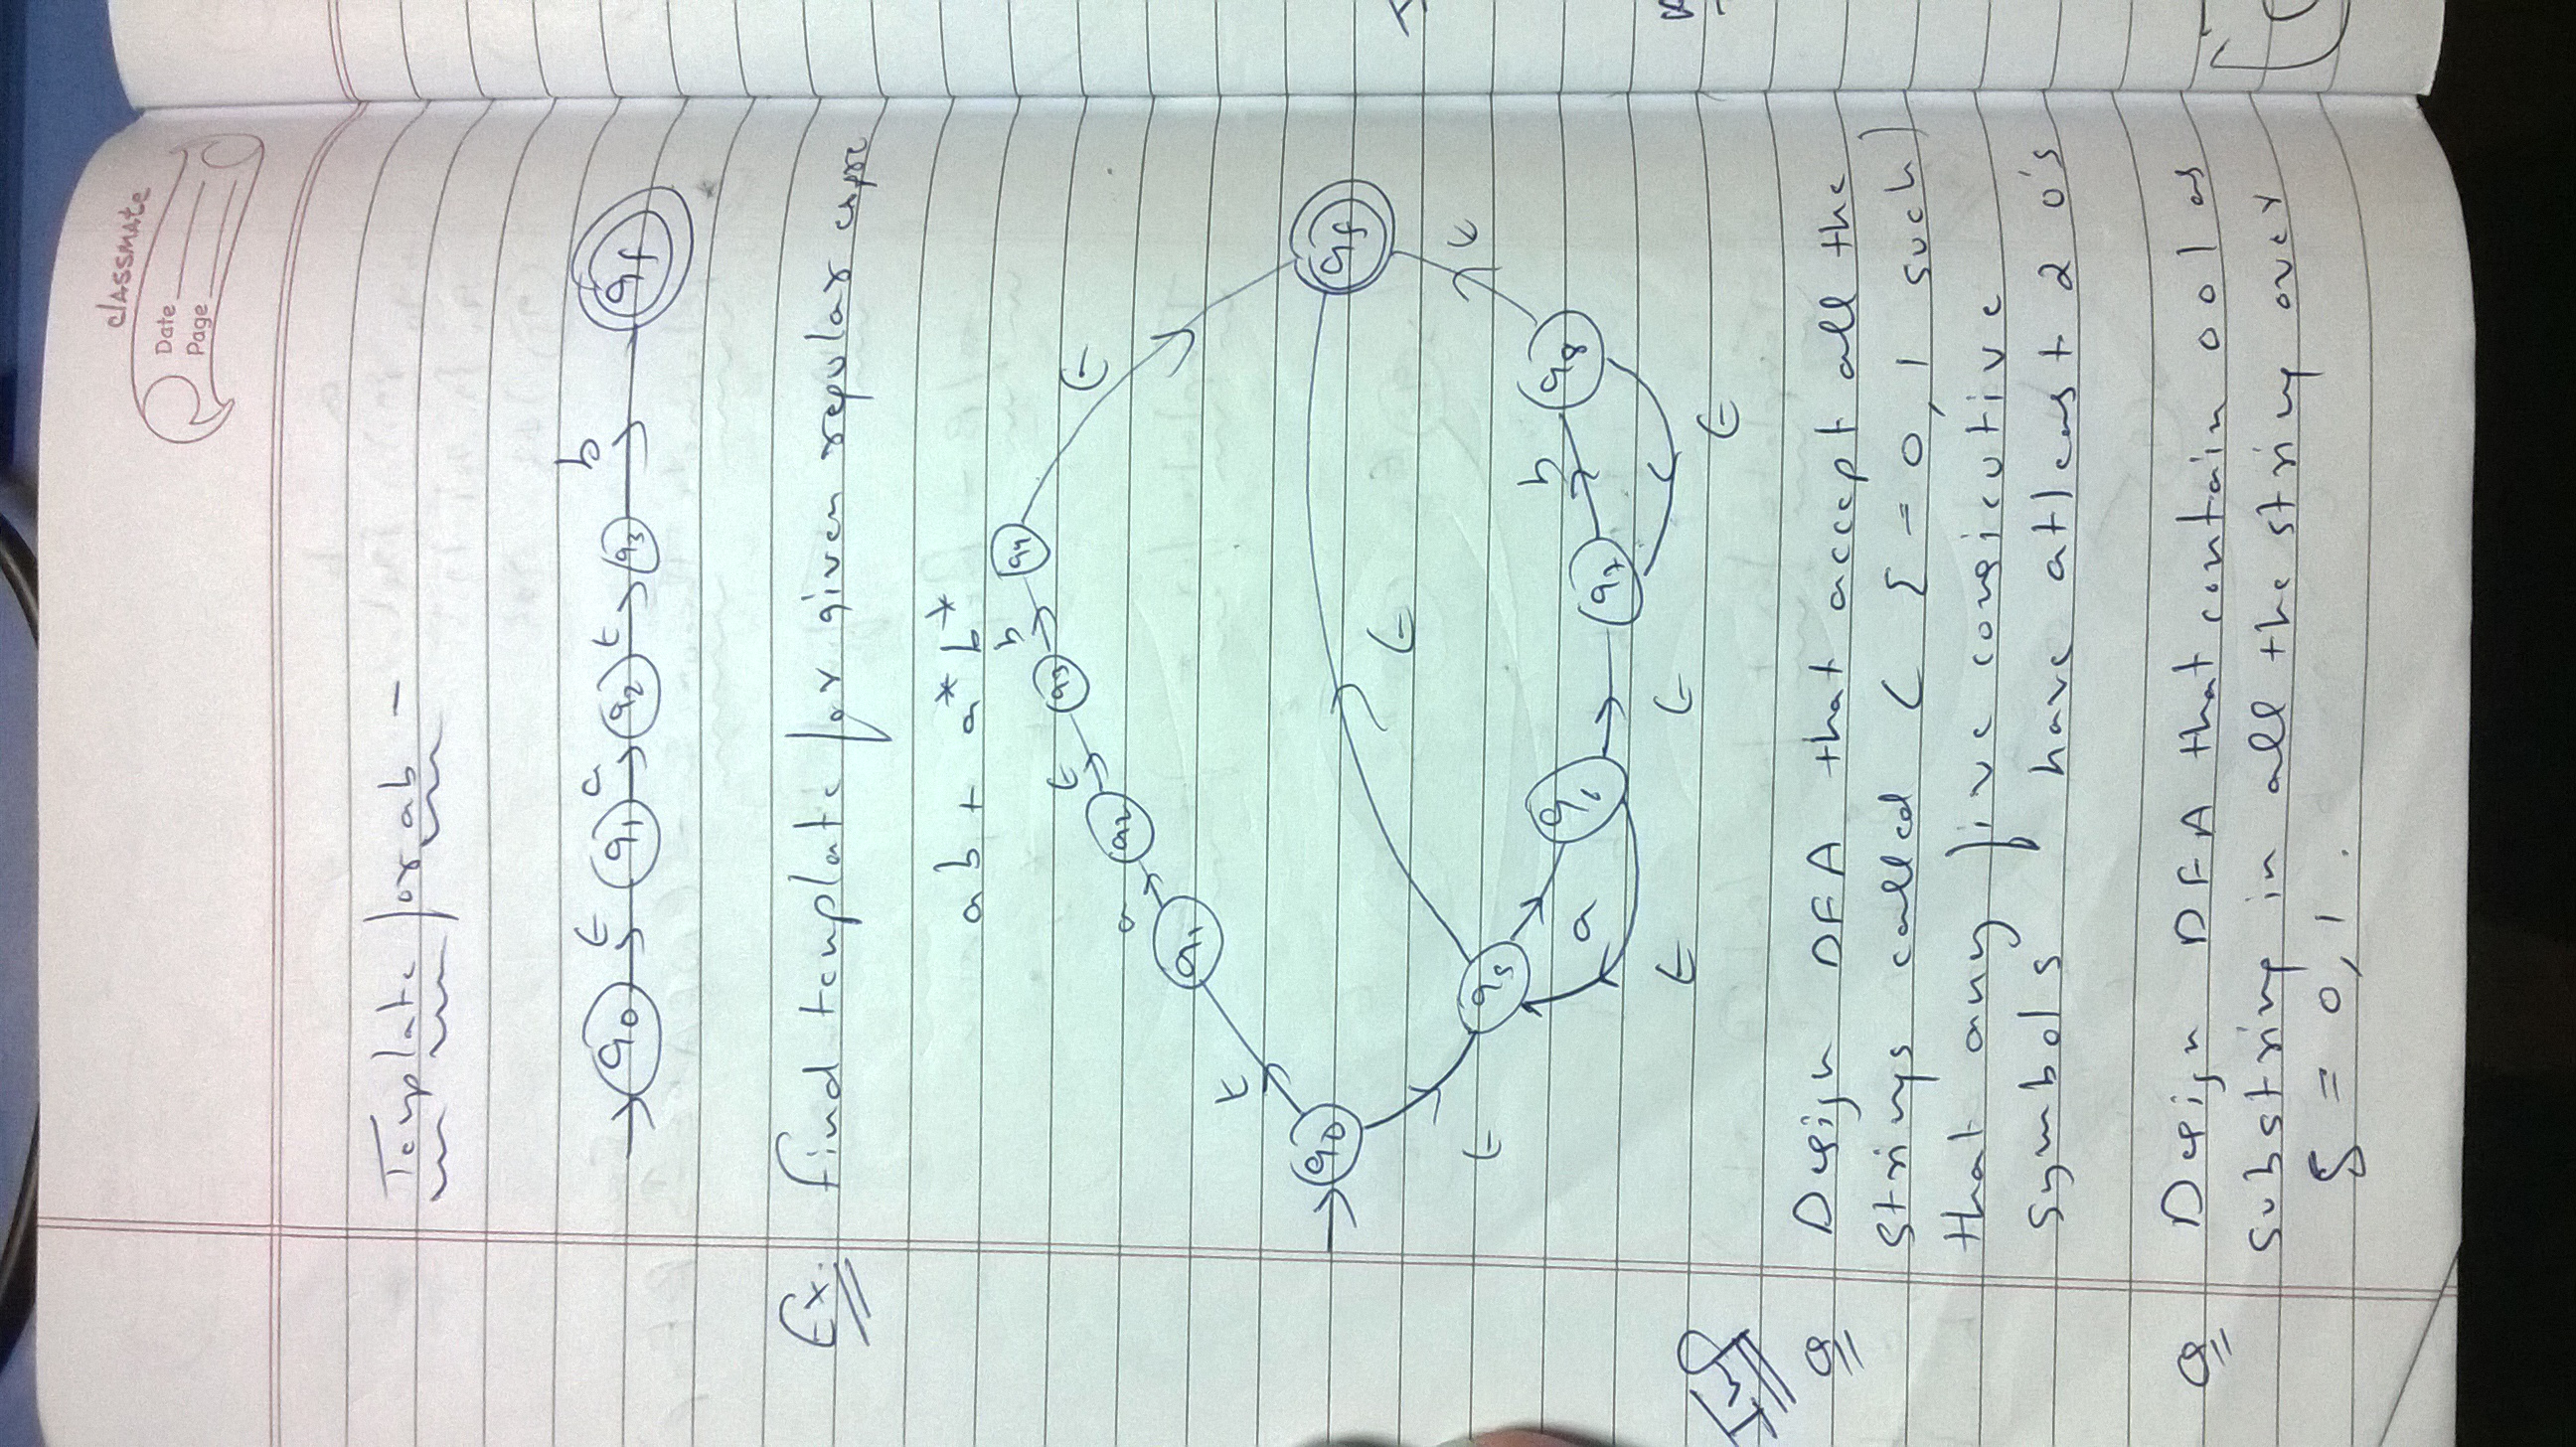 classmate
Date
Page
Template for ab -
q0 ε q1 a q2 ε q3 b qf
Ex. find template for given regular expre
ab + a* b*
b q4
ε q3 ε
a q2
q1
ε
q0 qf
ε
ε q5 ε
a q6 q7 b q8
ε ε ε
Imp
Q Design DFA that accept all the
strings called ( Σ = 0, 1 such)
that any five consicutive
symbols have atleast 2 0's
Q Design DFA that contain 001 as
substring in all the string over
Σ = 0, 1 .